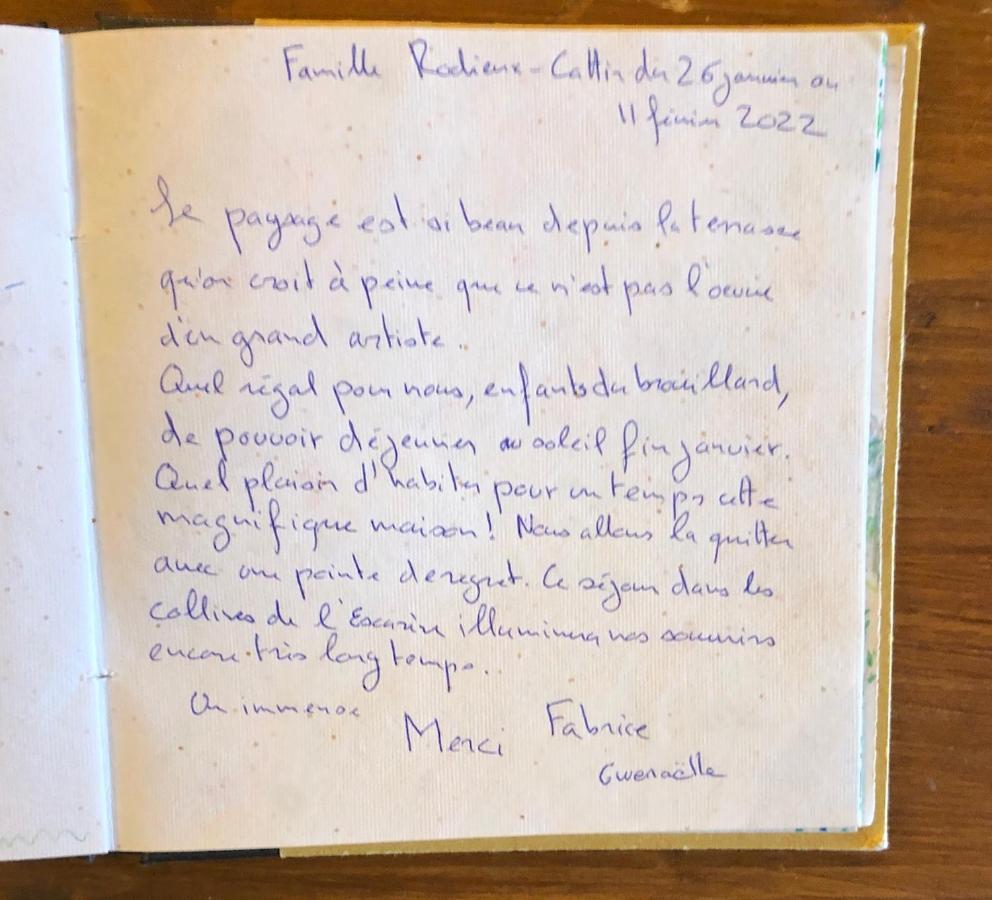 Famille Rodieux-Cattin du 26 janvier au
11 février 2022
Le paysage est si beau depuis la terrasse
qu'on croit à peine que ce n'est pas l'oeuvre
d'un grand artiste.
Quel régal pour nous, enfants du brouillard,
de pouvoir déjeuner au soleil fin janvier.
Quel plaisir d'habiter pour un temps cette
magnifique maison! Nous allons la quitter
avec une pointe de regret. Ce séjour dans les
collines de l'Escarène illuminera nos souvenirs
encore très longtemps..
Un immense
Merci Fabrice
Gwenaëlle